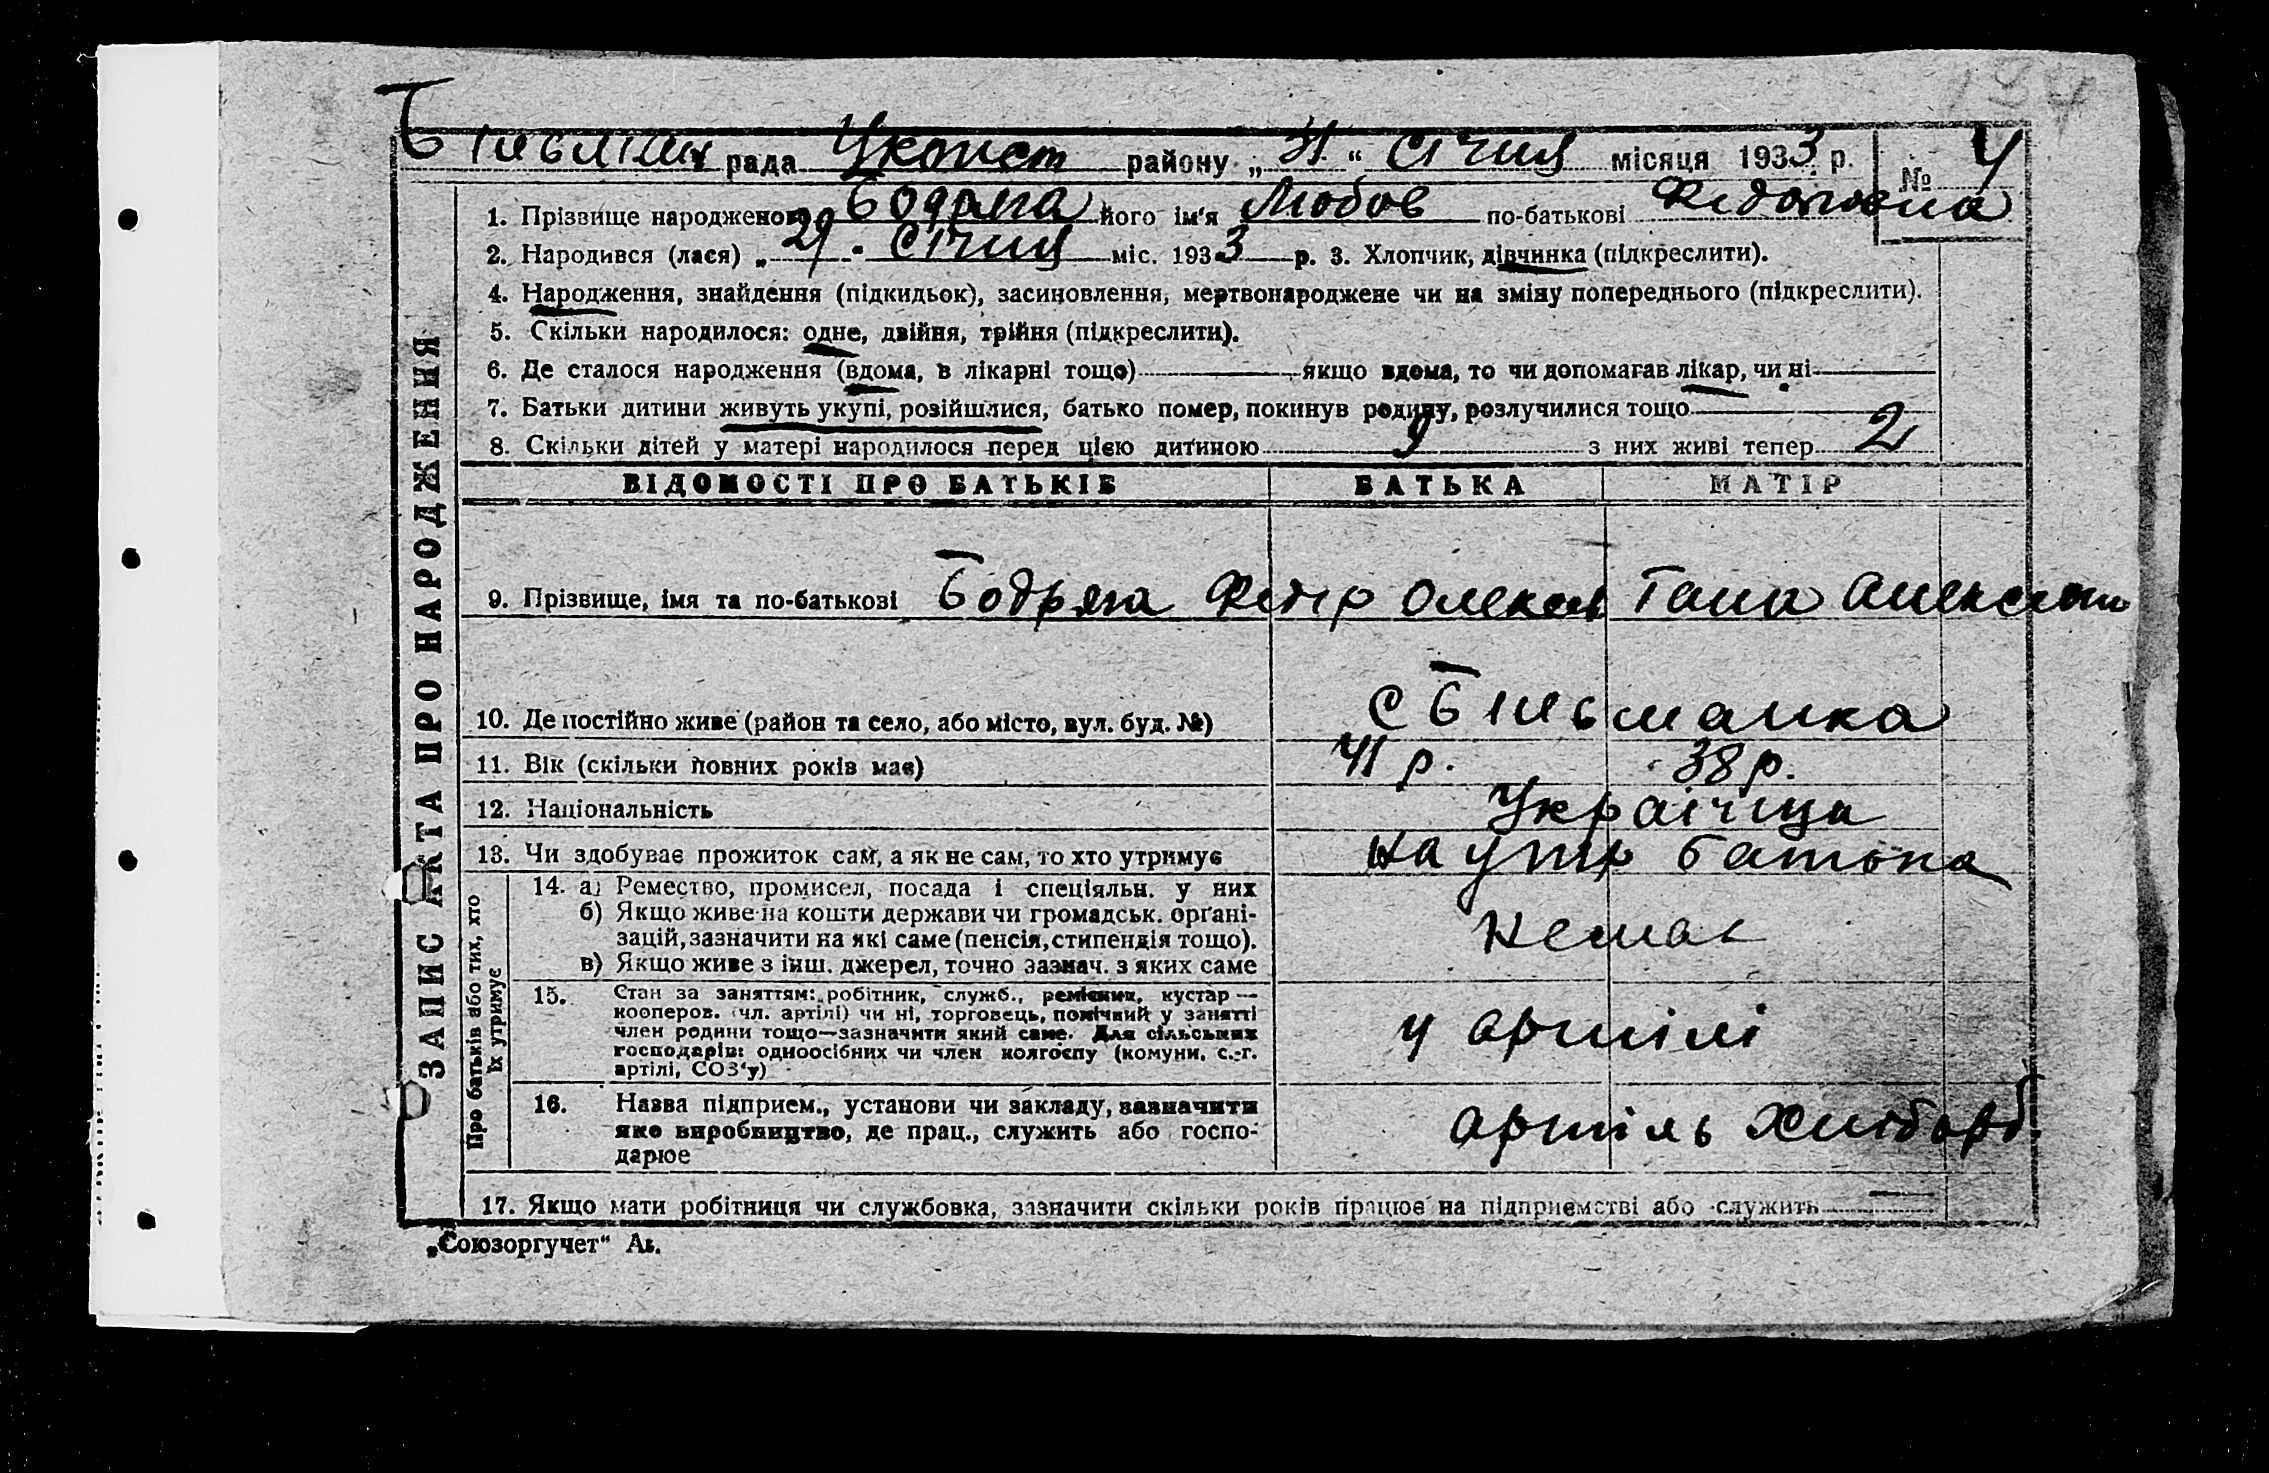 рада району „31“ Січня місяця 1933 р. № 4
1. Прізвище народженого Бодряга його ім'я Любов по-батькові Федотовна
2. Народився (лася) „29“ Січня міс. 1933 р. 3. Хлопчик, дівчинка (підкреслити).
4. Народження, знайдення (підкидьок), засиновлення, мертвонароджене чи на зміну попереднього (підкреслити).
5. Скільки народилося: одне, двійня, трійня (підкреслити).
6. Де сталося народження (вдома, в лікарні тощо) якщо вдома, то чи допомагав лікар, чи ні
7. Батьки дитини живуть укупі, розійшлися, батько помер, покинув родину, розлучилися тощо
8. Скільки дітей у матері народилося перед цією дитиною 9 з них живі тепер 2
ВІДОМОСТІ ПРО БАТЬКІВ БАТЬКА МАТІР
9. Прізвище, імя та по-батькові Бодряга Федір Олексов Ганна
10. Де постійно живе (район та село, або місто, вул. буд. №) с Більманка
11. Вік (скільки повних років має) 41 р. 38 р.
12. Національність Українці
13. Чи здобуває прожиток сам, а як не сам, то хто утримує на утр батька
14. а) Ремество, промисел, посада і спеціяльн. у них
б) Якщо живе на кошти держави чи громадськ. орґані-
зацій, зазначити на які саме (пенсія, стипендія тощо).
в) Якщо живе з інш. джерел, точно зазнач. з яких саме
немає
15. Стан за заняттям: робітник, служб., ремісник, кустар —
кооперов. (чл. артілі) чи ні, торговець, помічний у занятті
член родини тощо—зазначити який саме. Для сільських
господарів: одноосібних чи член колгоспу (комуни, с.-г.
артілі, СОЗ'у)
у артілі
16. Назва підприєм., установи чи закладу, зазначити
яке виробництво, де прац., служить або госпо-
дарює
артіль Хлібороб
17. Якщо мати робітниця чи службовка, зазначити скільки років працює на підприємстві або служить
ЗАПИС АКТА ПРО НАРОДЖЕННЯ
Про батьків або тих, хто
їх утримує
„Союзоргучет“